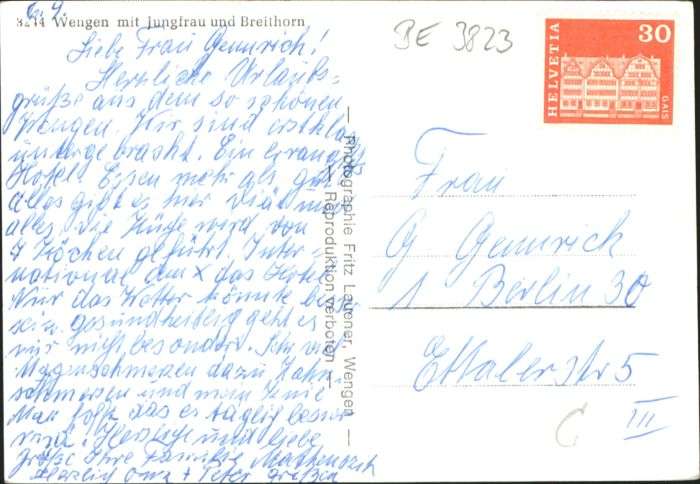 3244 Wengen mit Jungfrau und Breithorn
BE 3823
HELVETIA
30
GAIS
Liebe Frau Gennrich!
Herzliche Urlaubs-
grüße aus dem so schönen
Wengen. Wir sind erstkla
untergebracht. Ein
Hotel. Essen mehr als gut
alles gibt es hier
alles die Küche wird von
7 Köchen geführt. Inter-
national das Hotel
Nur das Wetter könnte be
sein. geht es
mir nicht besonders. Sehr
Magenschmerzen dazu Zahn
schmerzen und mein Knie
Man hofft das es täglich besser
wird. Herzliche und liebe
Grüße Ihre Familie
Herzlich Oma + Peter grüßen
— Photographie Fritz Lauener, Wengen —
— Reproduktion verboten —
Frau
G Gennrich
1 Berlin 30
Ettalerstr 5
III